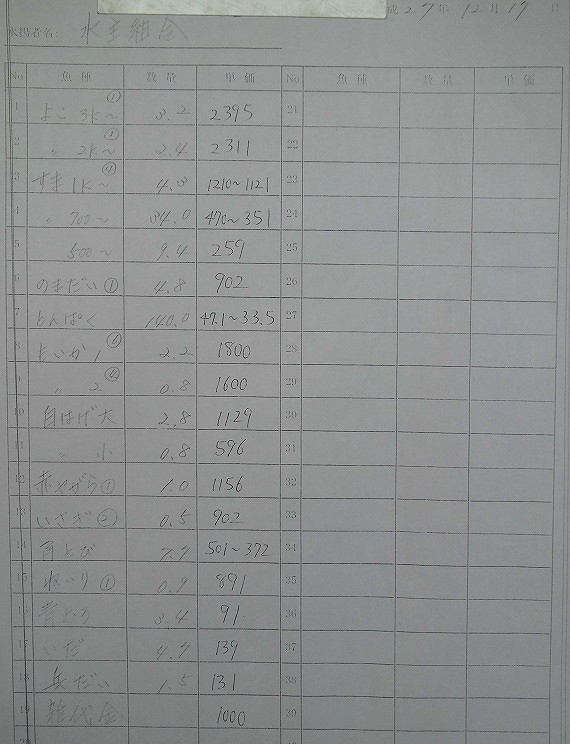 27年12月17日
水揚者名: 水主組合
No 魚種 数量 単価 No 魚種 数量 単価
1 よこ 3K~ ① 3.2 2395 21
2 〃 2K~ ① 2.4 2311 22
3 すま 1K~ ④ 4.8 1210~1121 23
4 〃 700~ 34.0 470~351 24
5 500~ 9.4 259 25
6 のまだい ① 4.8 902 26
7 とんぱく 140.0 47.1~33.5 27
8 ⑥ 2.2 1800 28
9 〃 2 ④ 0.8 1600 29
10 白はげ大 2.8 1129 30
11 〃 小 0.8 596 31
12 赤やがら ① 1.0 1156 32
13 いさぎ ② 0.5 902 33
14 7.7 501~372 34
15 ① 0.9 891 35
16 3.4 91 36
17 いだ 4.7 139 37
18 兵だい 1.5 131 38
19 雑代金 1000 39